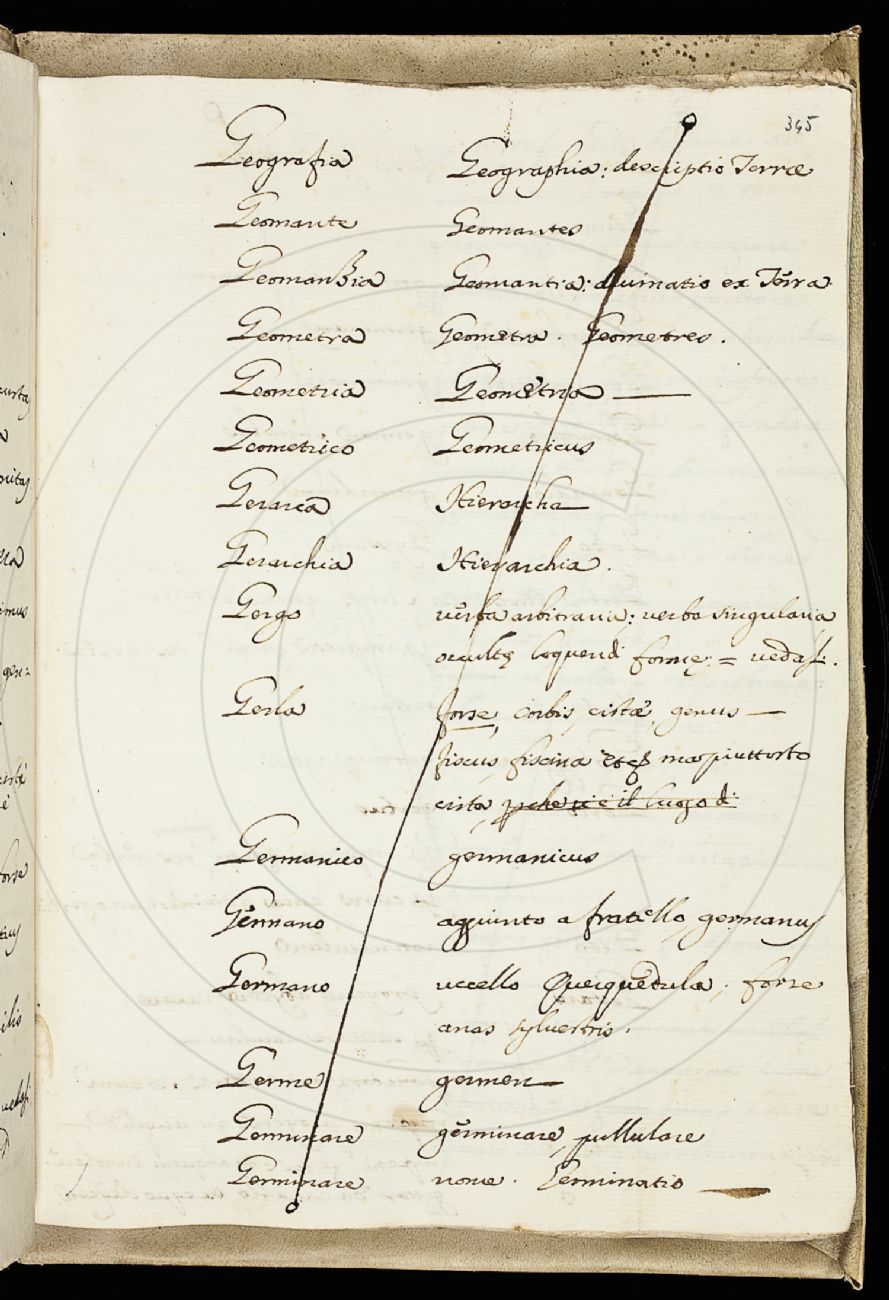 345
Geografia Geographia: descriptio Terræ
Geomante Geomantes
Geomanzia Geomantia: divinatio ex Terra.
Geometra Geometra. Geometres.
Geometria Geometria
Geometrico Geometricus
Gerarca Hierarcha
Gerarchia Hierarchia.
Gergo verba arbitraria; verba singularia
occultę loquendi formę; = vedasi.
Gerla forse, corbis, cistæ, genus
fiscus, fiscina et ma piuttosto
cista, il luogo di
Germanico germanicus
Germano aggiunto a fratello, germanus
Germano uccello Querquedula; forse
anas sylvestris.
Germe germen
Germinare germinare, pullulare
Germinare nome. Germinatio